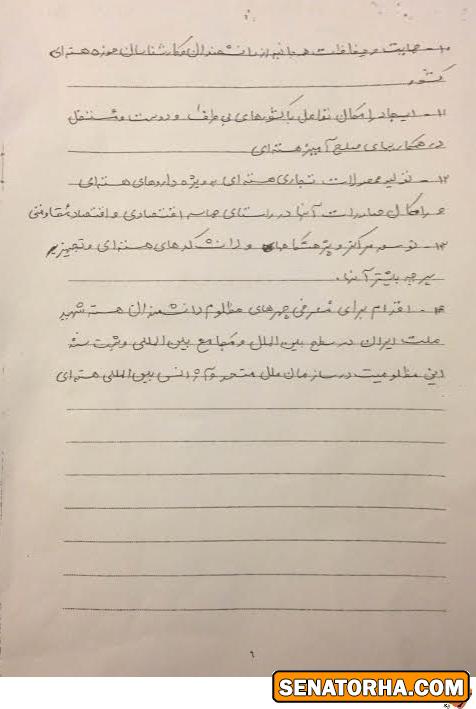 ۱۰- حمایت و حفاظت همه جانبه از دانشمندان و کارشناسان حوزه هسته‌ای
کشور
۱۱- ایجاد امکان تعامل با کشورهای بی طرف و دوست و مستقل
در همکاریهای صلح آمیز هسته‌ای
۱۲- تولید محصولات تجاری هسته‌ای به ویژه داروهای هسته‌ای
و امکان صادرات آنها در راستای حماسه اقتصادی و اقتصاد مقاومتی
۱۳- توسعه مراکز و پژوهشگاههای و دانشکده‌های هسته‌ای و تجهیز
هر چه بیشتر آنها.
۱۴- اقدام برای معرفی چهره‌های مظلوم دانشمندان هسته شهید
ملت ایران در سطح بین الملل و مجامع بین المللی و ثبت سند
این مظلومیت در سازمان ملل متحد و آژانس بین المللی هسته‌ای
۶
SENATORHA.COM